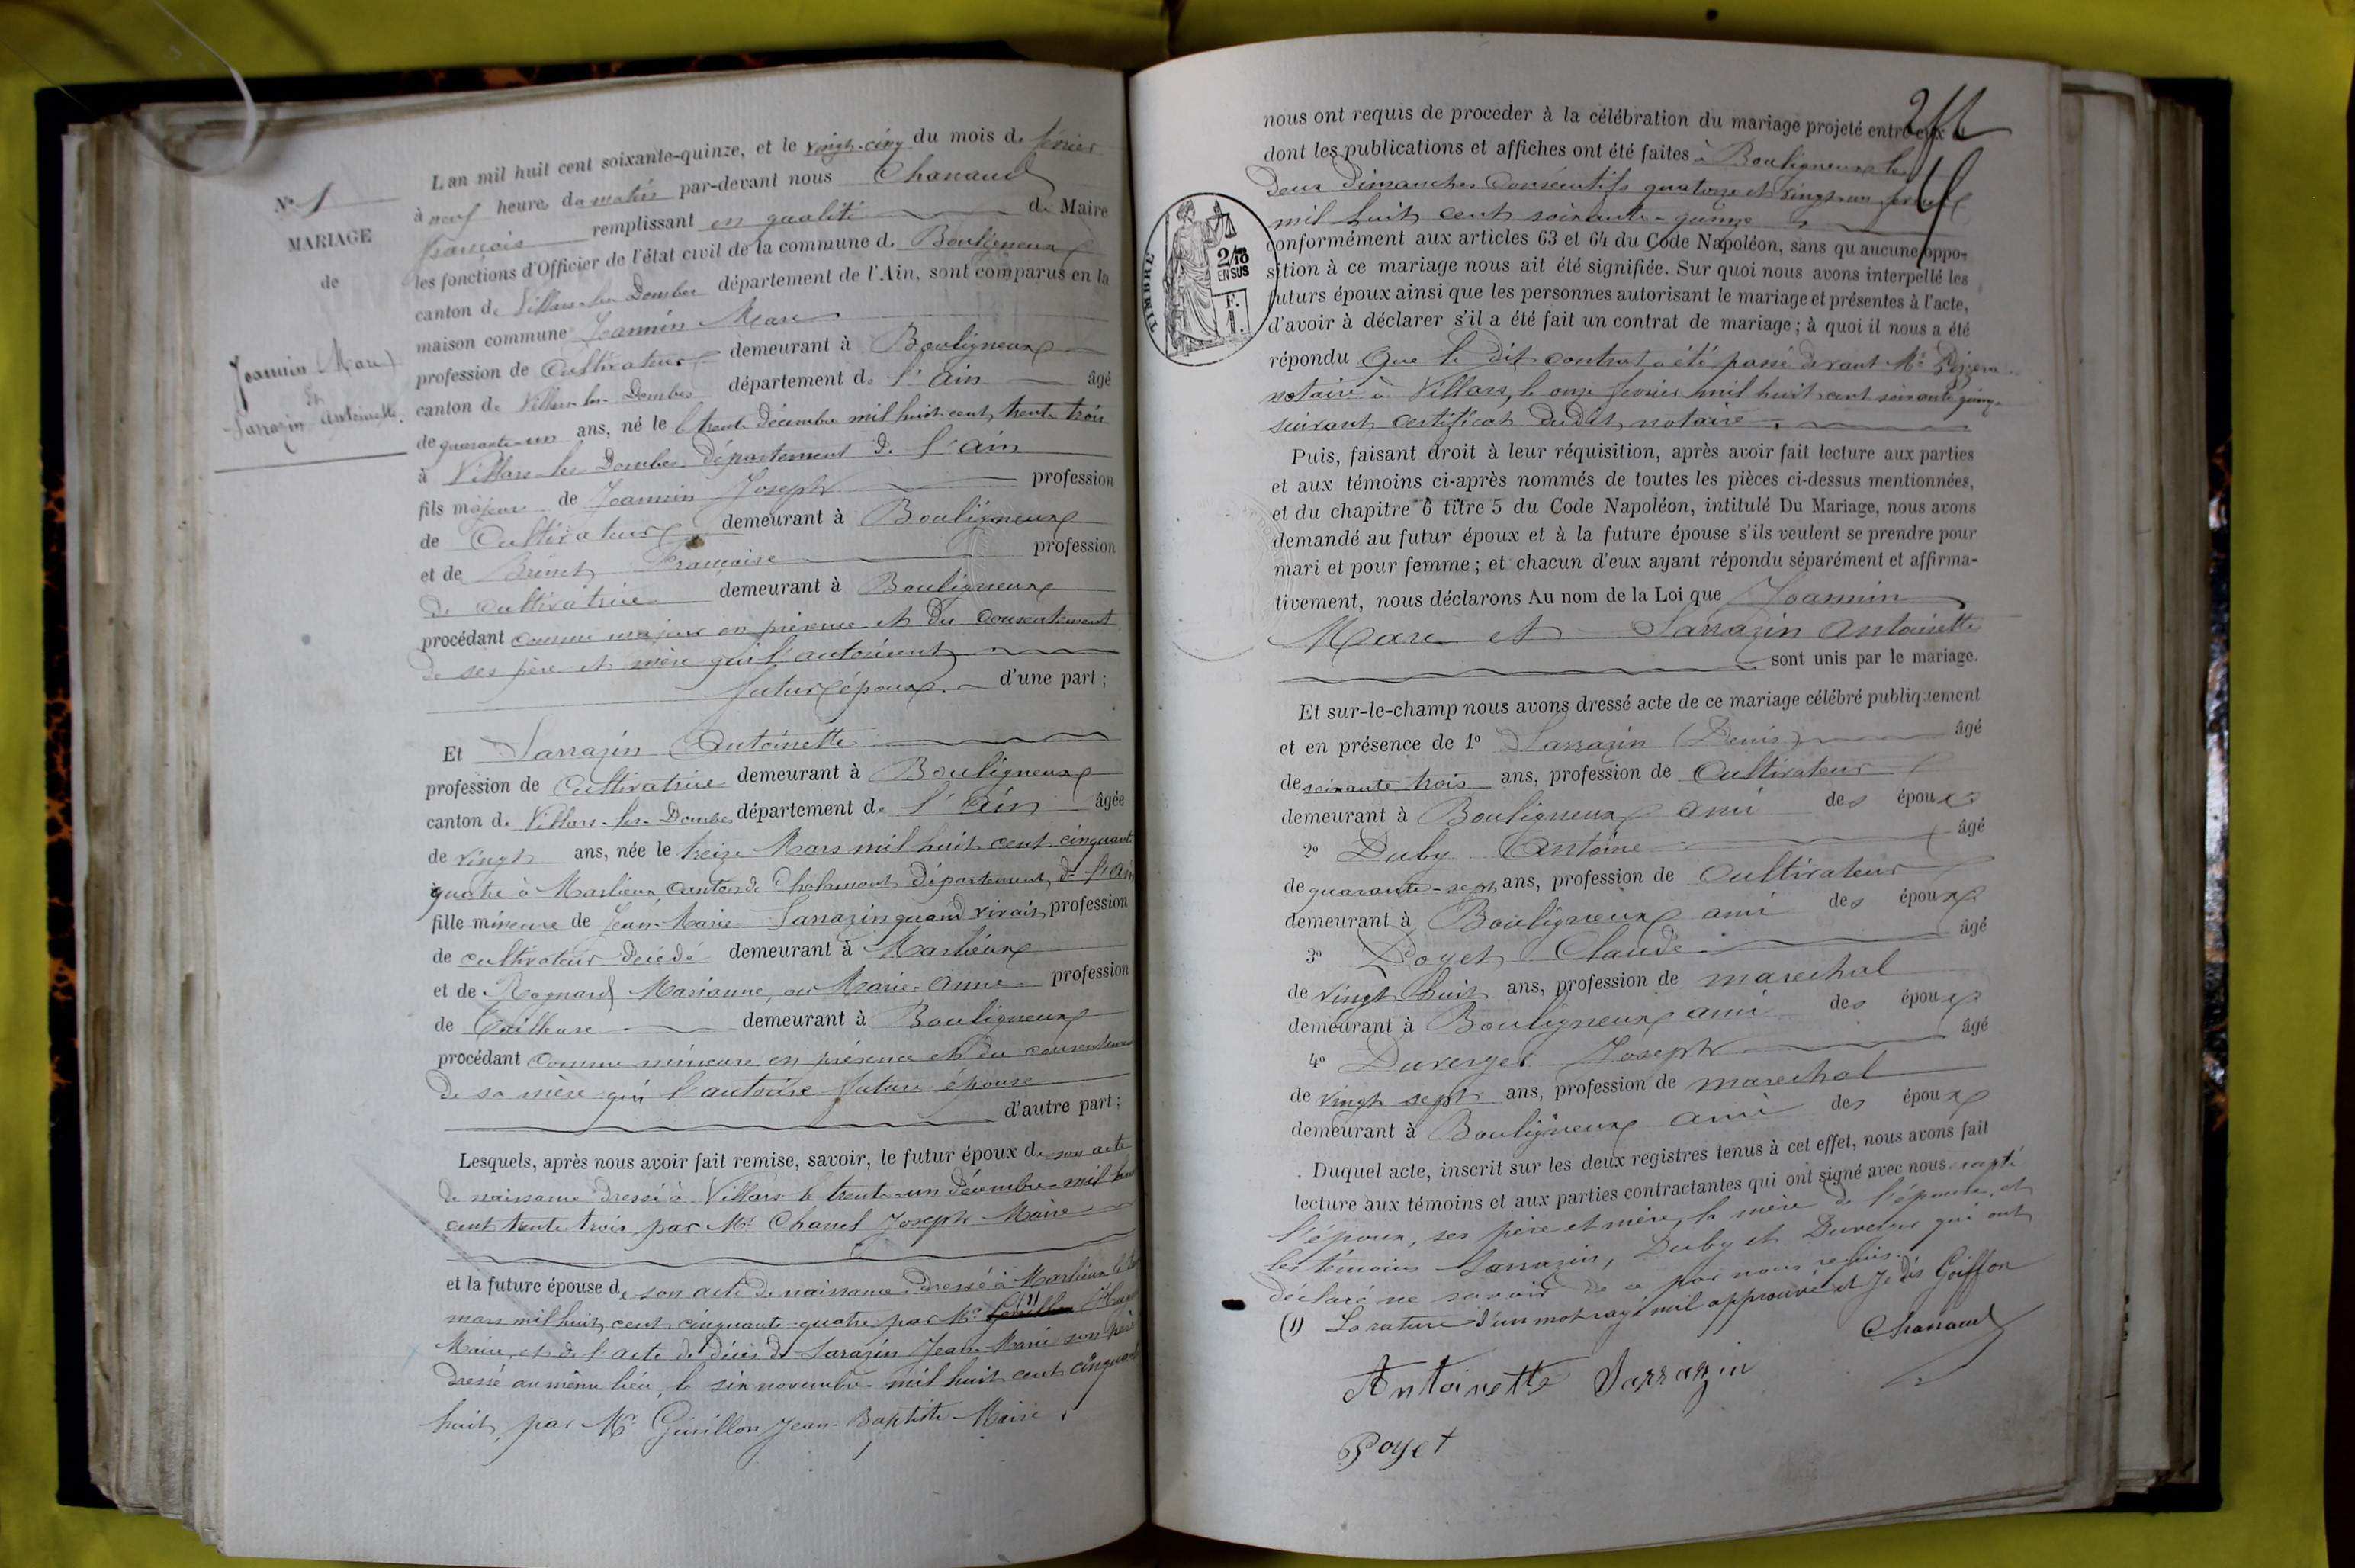 N° 1
MARIAGE
de
Joannin Marc
et
Sarrazin Antoinette.
L'an mil huit cent soixante-quinze, et le vingt-cinq du mois de février
à neuf heures du matin par-devant nous Chanaud
François remplissant en qualité de Maire
les fonctions d'Officier de l'état civil de la commune de Bouligneux
canton de Villars-les-Dombes département de l'Ain, sont comparus en la
maison commune Joannin Marc
profession de Cultivateur demeurant à Bouligneux
canton de Villars-les-Dombes département de l'Ain âgé
de quarante-un ans, né le trente décembre mil huit cent trente trois
à Villars-les-Dombes département de l'Ain
fils majeur de Joannin Joseph profession
de Cultivateur demeurant à Bouligneux
et de Brunet Françoise profession
de cultivatrice demeurant à Bouligneux
procédant comme majeur en présence et du consentement
de ses père et mère qui l'autorisent
futur époux. d'une part ;
Et Sarrazin Antoinette
profession de Cultivatrice demeurant à Bouligneux
canton de Villars-les-Dombes département de l'Ain âgée
de vingt ans, née le treize Mars mil huit cent cinquante
quatre à Marlieux canton de Chalamont Département de l'Ain
fille mineure de Jean-Marie Sarrazin quand vivait profession
de cultivateur décédé demeurant à Marlieux
et de Rognard Marianne, ou Marie-Anne profession
de Tailleuse demeurant à Bouligneux
procédant comme mineure en présence et du consentement
de sa mère qui l'autorise future épouse
d'autre part ;
Lesquels, après nous avoir fait remise, savoir, le futur époux de son acte
de naissance dressé à Villars le trente-un Décembre mil huit
cent trente trois par Mr Chanel Joseph Maire
et la future épouse de son acte de naissance dressé à Marlieux le
mars mil huit cent cinquante-quatre par Mr (1)
Maire, et de l'acte de décès de Sarrazin Jean-Marie son père
dressé au même lieu, le six novembre mil huit cent cinquante
huit, par Mr Guillon Jean-Baptiste Maire.
nous ont requis de procéder à la célébration du mariage projeté entre eux et
dont les publications et affiches ont été faites à Bouligneux les
deux Dimanches Consécutifs quatorze et vingt-un février
mil huit cent soixante-quinze
conformément aux articles 63 et 64 du Code Napoléon, sans qu'aucune oppo-
sition à ce mariage nous ait été signifiée. Sur quoi nous avons interpellé les
futurs époux ainsi que les personnes autorisant le mariage et présentes à l'acte,
d'avoir à déclarer s'il a été fait un contrat de mariage ; à quoi il nous a été
répondu Que le dit contrat a été passé devant Me
notaire à Villars, le onze février mil huit cent soixante quinze
suivant certificat dudit notaire.
Puis, faisant droit à leur réquisition, après avoir fait lecture aux parties
et aux témoins ci-après nommés de toutes les pièces ci-dessus mentionnées,
et du chapitre 6 titre 5 du Code Napoléon, intitulé Du Mariage, nous avons
demandé au futur époux et à la future épouse s'ils veulent se prendre pour
mari et pour femme ; et chacun d'eux ayant répondu séparément et affirma-
tivement, nous déclarons Au nom de la Loi que Joannin
Marc et Sarrazin Antoinette
sont unis par le mariage.
Et sur-le-champ nous avons dressé acte de ce mariage célébré publiquement
et en présence de 1° Sarrazin Denis âgé
de soixante trois ans, profession de Cultivateur
demeurant à Bouligneux ami des époux
2° Duby Antoine âgé
de quarante-sept ans, profession de Cultivateur
demeurant à Bouligneux ami des époux
3° Poyet Claude âgé
de vingt huit ans, profession de marechal
demeurant à Bouligneux ami des époux
4° Duverger Joseph âgé
de vingt sept ans, profession de marechal
demeurant à Bouligneux ami des époux
Duquel acte, inscrit sur les deux registres tenus à cet effet, nous avons fait
lecture aux témoins et aux parties contractantes qui ont signé avec nous excepté
l'époux, ses père et mère, la mère de l'épouse, et
les témoins Sarrazin, Duby et Duverger qui ont
déclaré ne savoir de ce par nous requis.
(1) La rature d'un mot rayé nul approuvé et Je dis Goiffon
Chanaud
Antoinette Sarrazin
Poyet
TIMBRE
2/10
EN SUS
F.